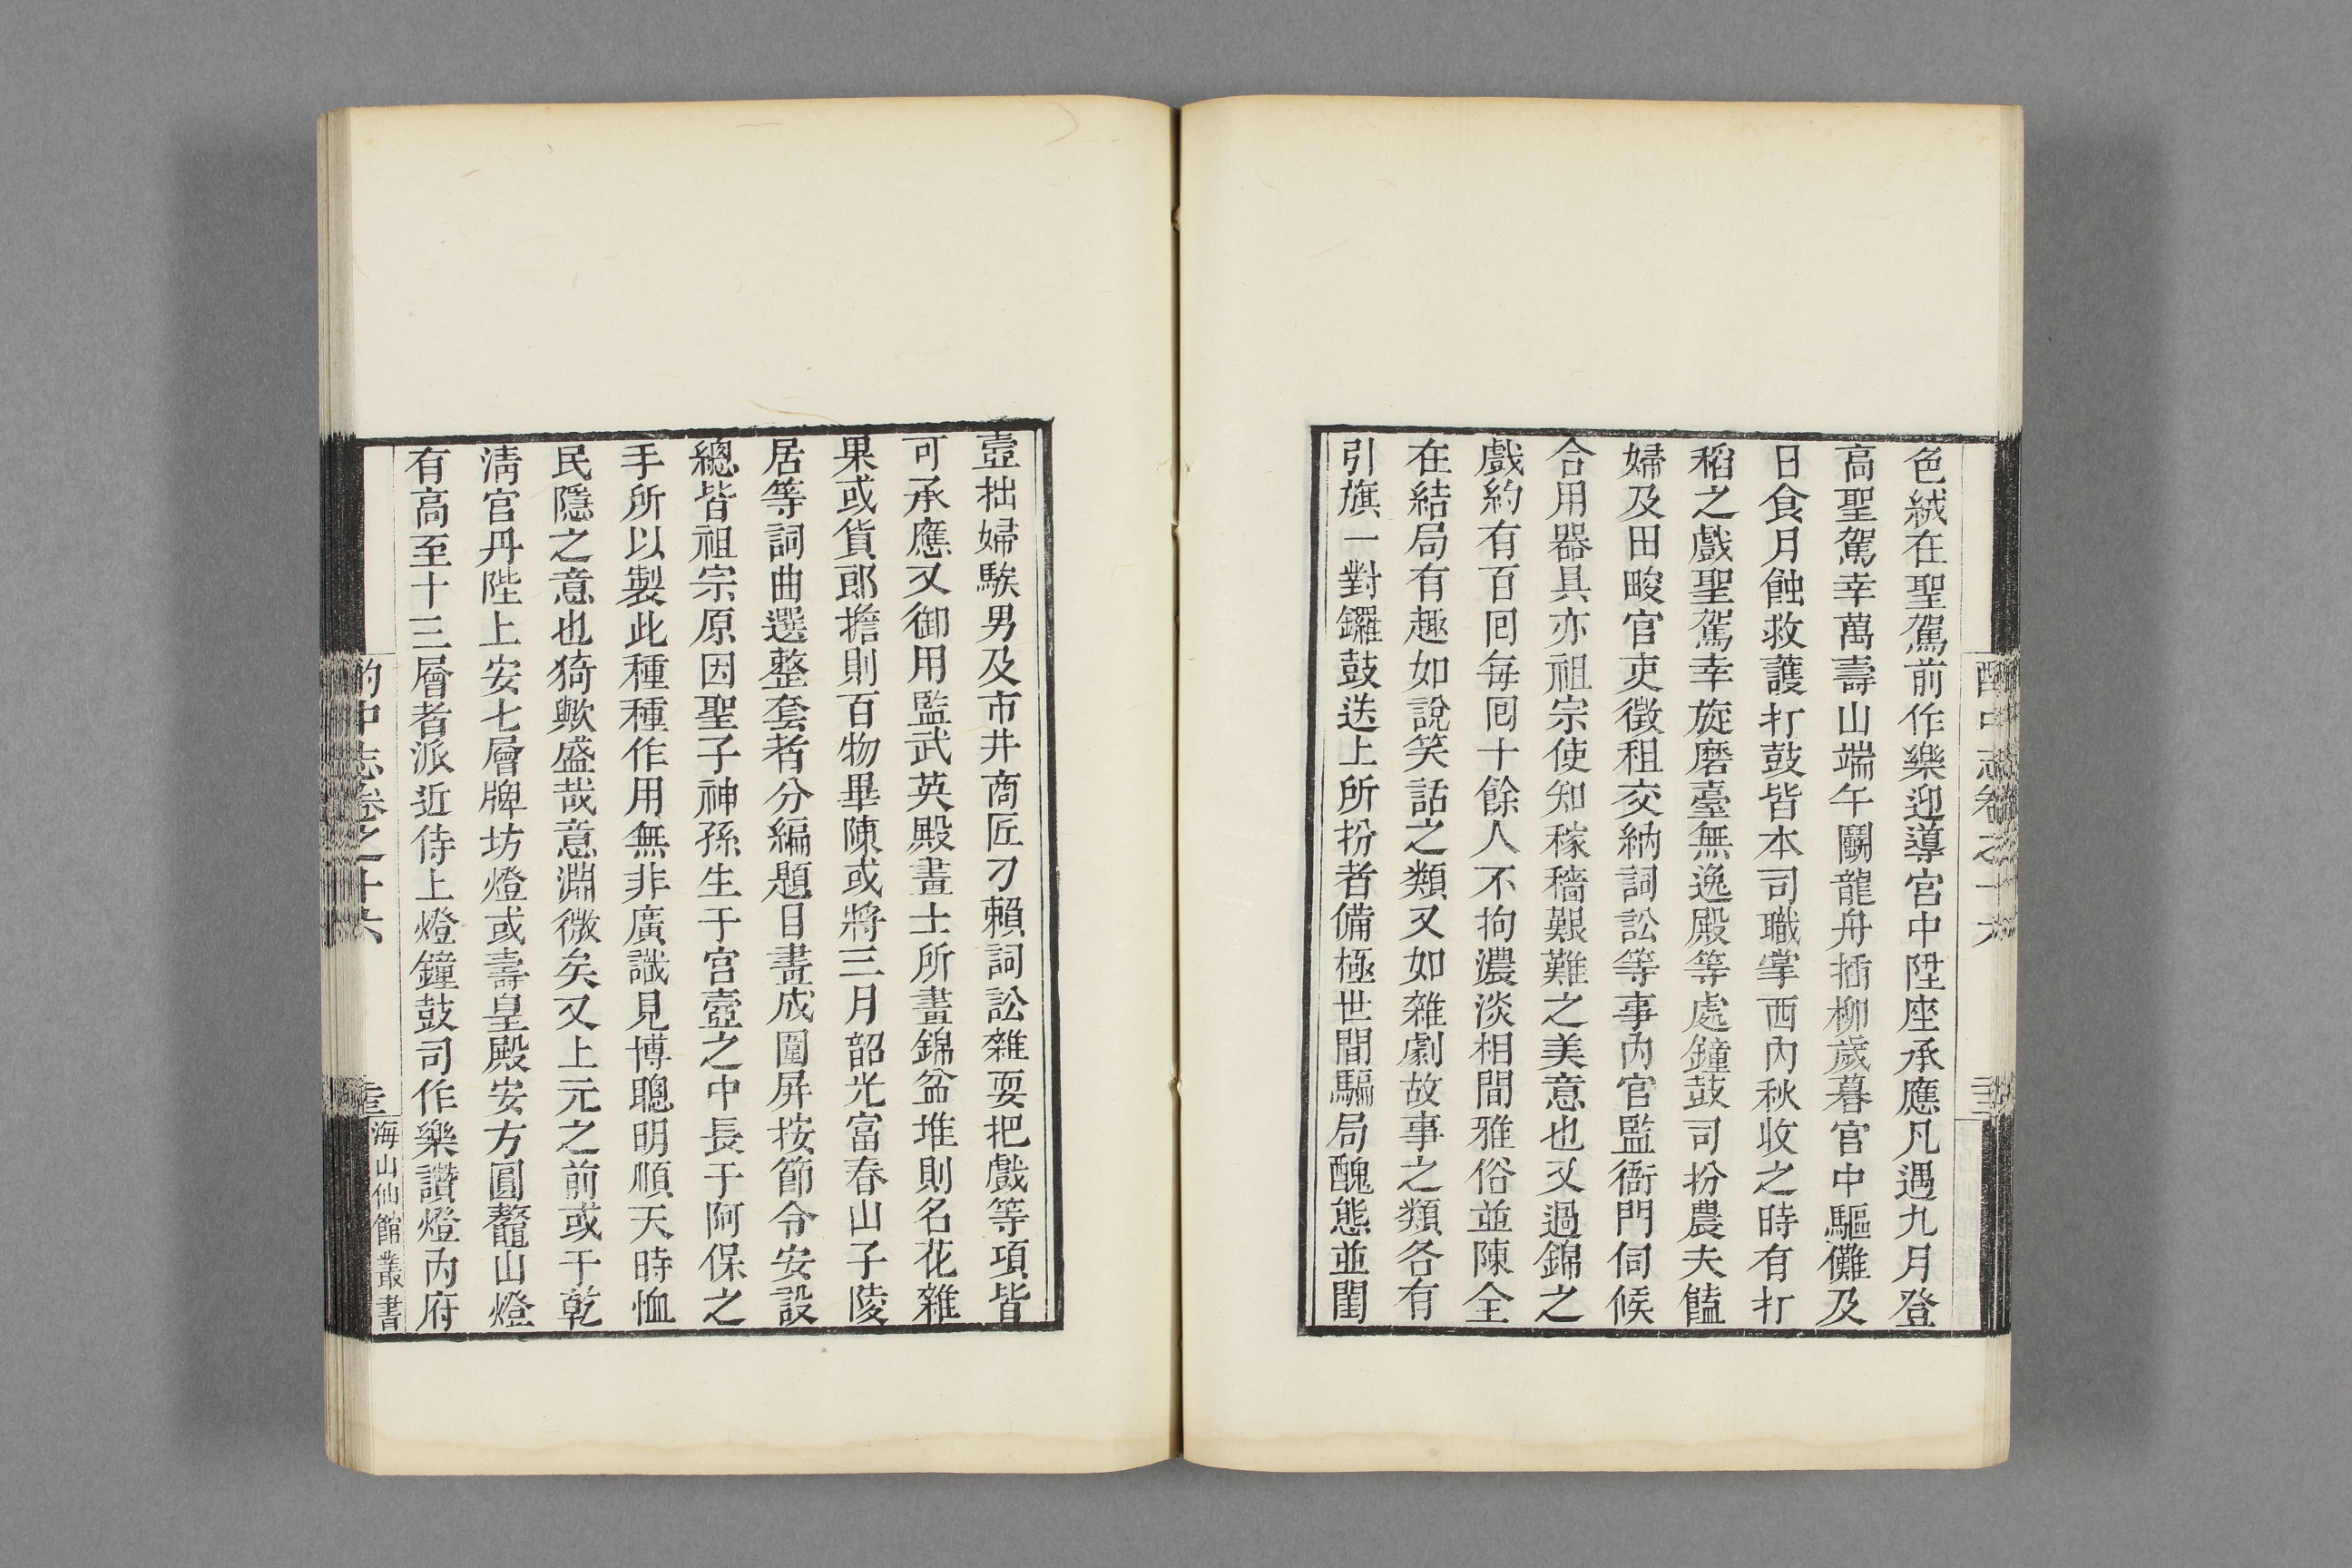 酌中志卷之十六
色絨在聖駕前作樂迎導宮中陞座承應凡遇九月登
高聖駕幸萬壽山端午鬬龍舟插柳歲暮宮中驅儺及
日食月蝕救護打鼓皆本司職掌西內秋收之時有打
稻之戲聖駕幸旋磨臺無逸殿等處鐘鼓司扮農夫饁
婦及田畯官吏徵租交納詞訟等事內官監衙門伺候
合用器具亦祖宗使知稼穡艱難之美意也又過錦之
戲約有百囘每囘十餘人不拘濃淡相間雅俗並陳全
在結局有趣如說笑話之類又如雜劇故事之類各有
引旗一對鑼鼓送上所扮者備極世間騙局醜態並閨
壼拙婦騃男及市井商匠刁賴詞訟雜耍把戲等項皆
可承應又御用監武英殿畫士所畫錦盆堆則名花雜
果或貨郎擔則百物畢陳或將三月韶光富春山子陵
居等詞曲選整套者分編題目畫成圍屏按節令安設
總皆祖宗原因聖子神孫生于宮壼之中長于阿保之
手所以製此種種作用無非廣識見博聰明順天時恤
民隱之意也猗歟盛哉意淵微矣又上元之前或于乾
清宮丹陛上安七層牌坊燈或壽皇殿安方圓鰲山燈
有高至十三層者派近侍上燈鐘鼓司作樂讚燈內府
酌中志卷之十六
海山仙館叢書